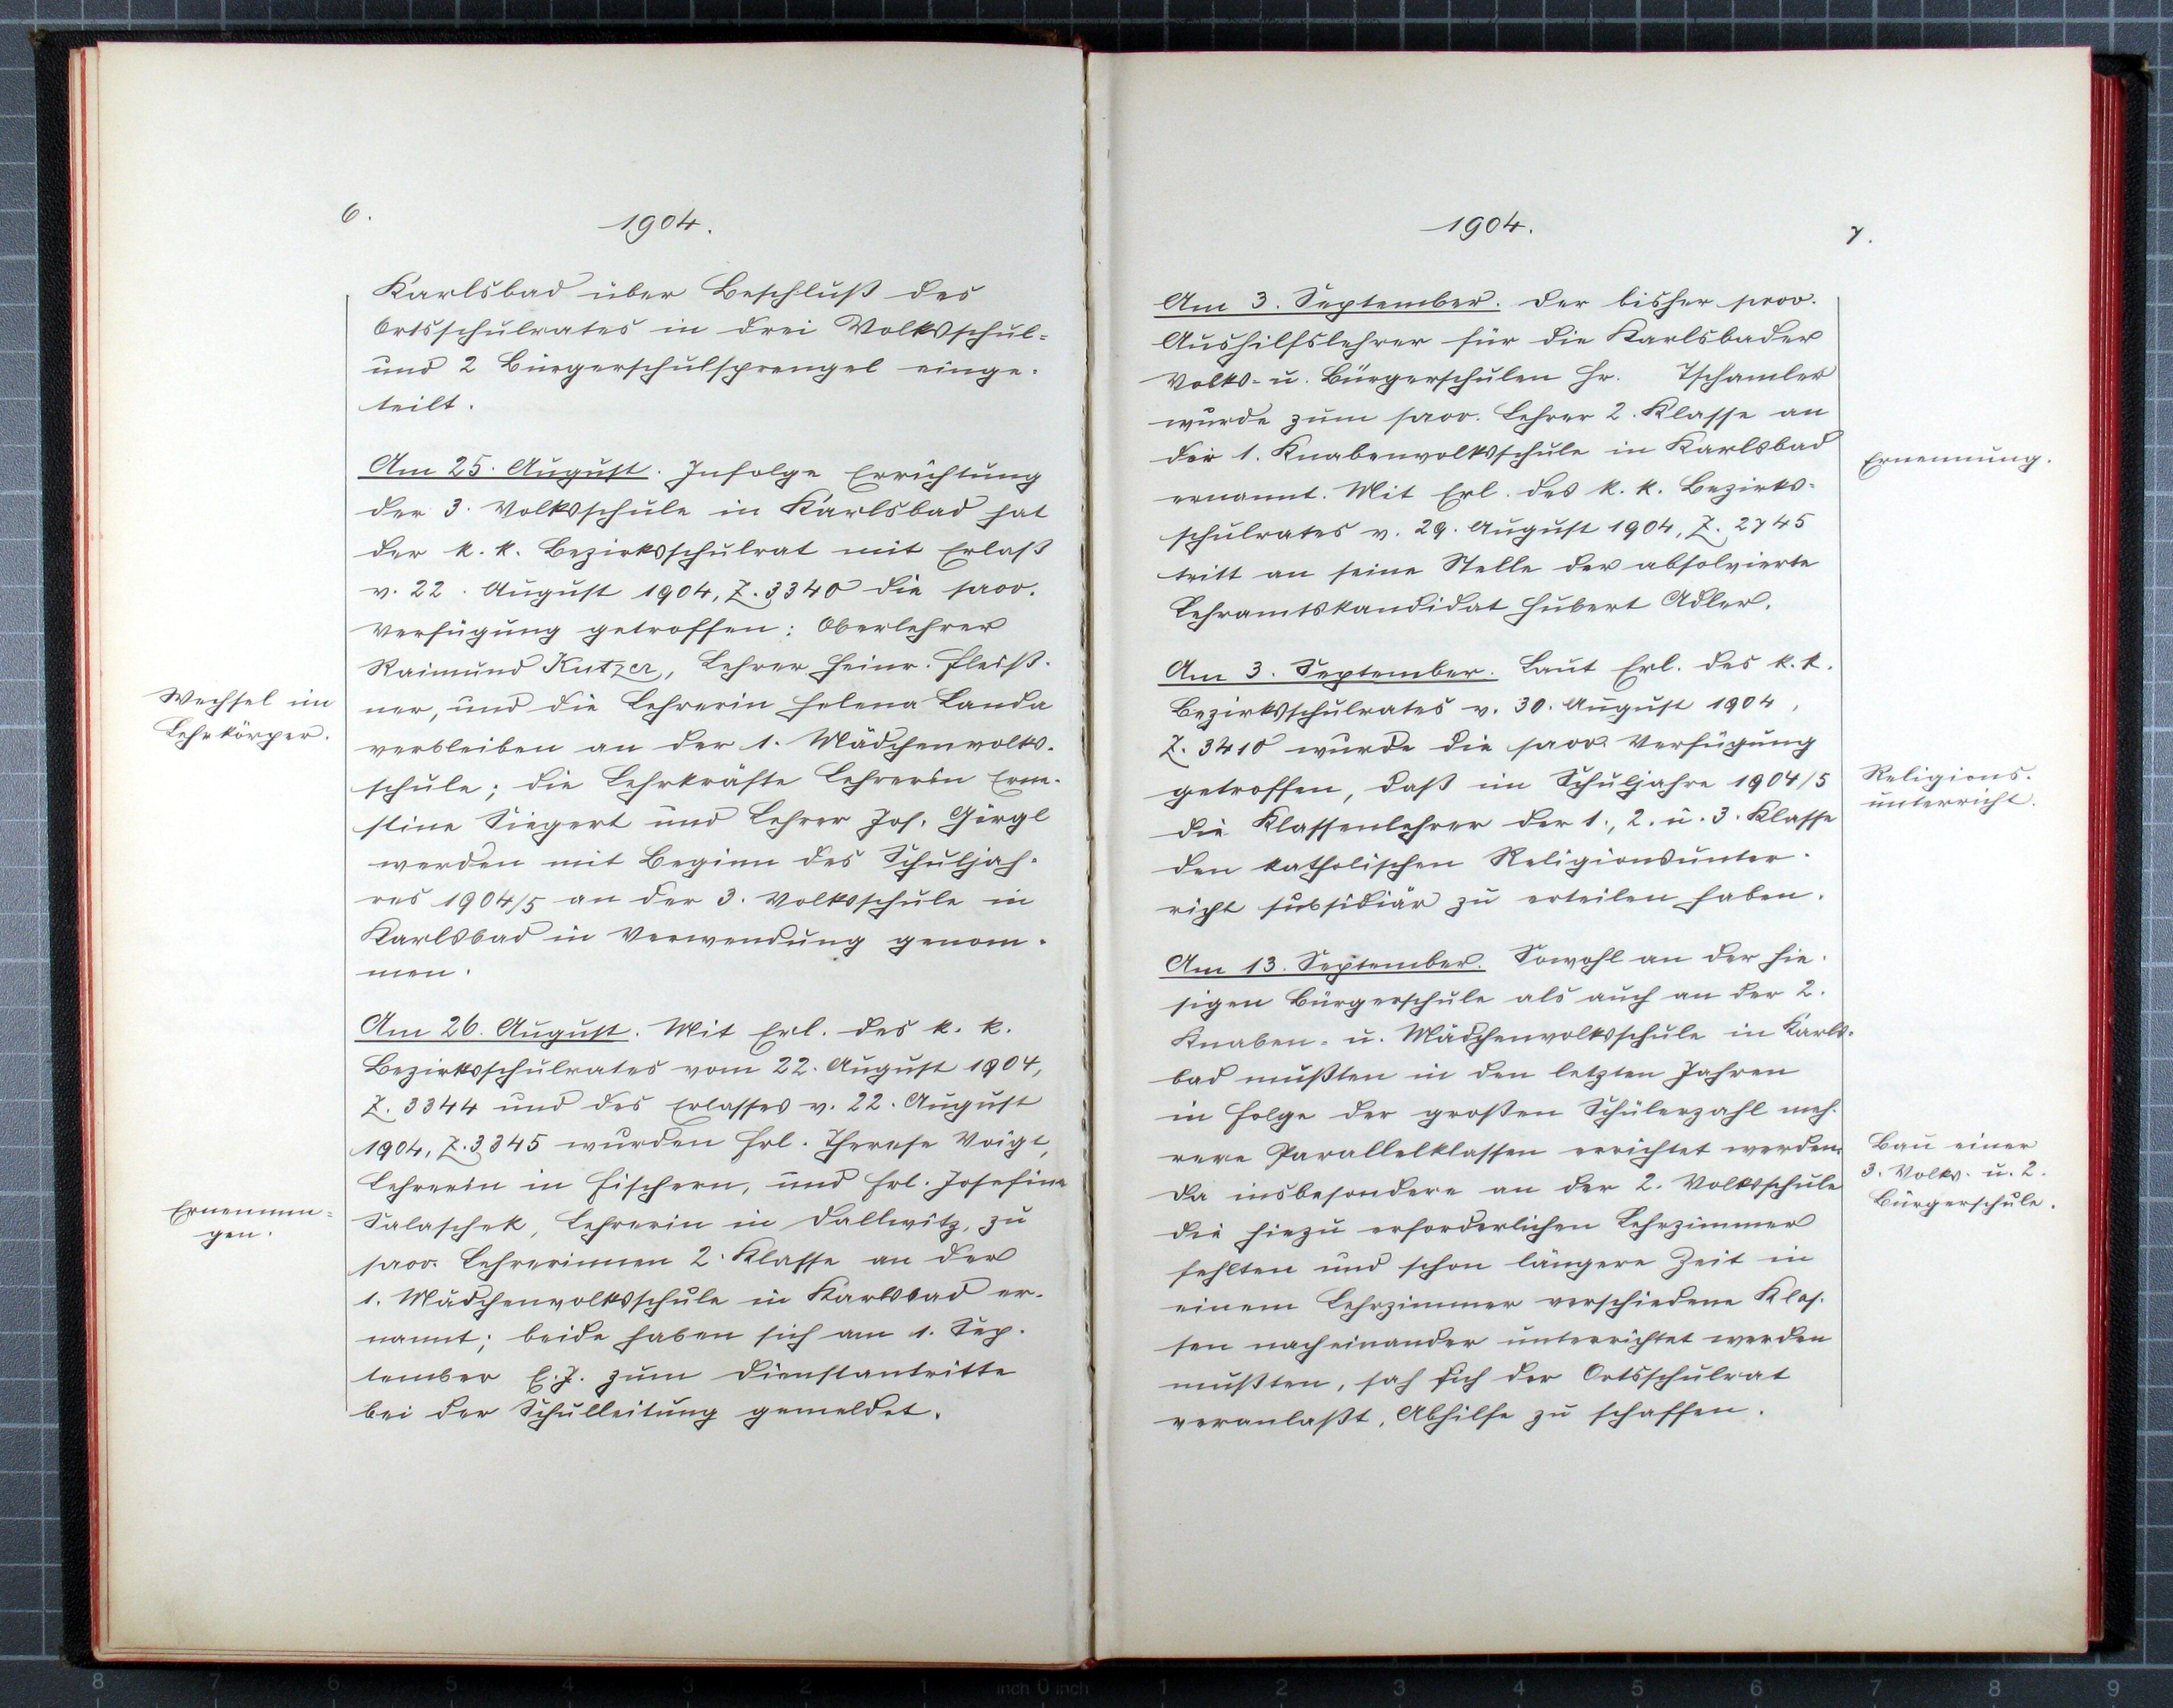 6.
1904.
Karlsbad über Beschluß des
Ortsschulrates in drei Volksschul-
und 2 Bürgerschulsprengel einge-
teilt.
Am 25. August. Infolge Errichtung
der 3. Volksschule in Karlsbad hat
der k. k. Bezirksschulrat mit Erlaß
v. 22. August 1904, Z. 3340 die prov.
Verfügung getroffen: Oberlehrer
Raimund Kutzer, Lehrer Heinr. Fleiß-
ner, und die Lehrerin Helena Landa
verbleiben an der 1. Mädchenvolks-
schule; die Lehrkräfte Lehrerin Erne-
stine Siegert und Lehrer Jos. Görgl
werden mit Beginn des Schuljah-
res 1904/5 an der 3. Volksschule in
Karlsbad in Verwendung genom-
men.
Wechsel im
Lehrkörper.
Am 26. August. Mit Erl. des k. k.
Bezirksschulrates vom 22. August 1904,
Z. 3344 und des Erlasses v. 22. August
1904, Z. 3345 wurden Frl. Therese Voigt,
Lehrerin in Fischern, und Frl. Josefine
Salaschek, Lehrerin in Dallwitz, zu
prov. Lehrerinnen 2. Klasse an der
1. Mädchenvolksschule in Karlsbad er-
nannt; beide haben sich am 1. Sep-
tember l. J. zum Dienstantritte
bei der Schulleitung gemeldet.
Ernennun-
gen.
1904.
7.
Am 3. September. Der bisher prov.
Aushilfslehrer für die Karlsbader
Volks- u. Bürgerschulen Hr. Tschamler
wurde zum prov. Lehrer 2. Klasse an
der 1. Knabenvolksschule in Karlsbad
ernannt. Mit Erl. des k. k. Bezirks-
schulrates v. 29. August 1904, Z. 2745
tritt an seine Stelle der absolvierte
Lehramtskandidat Hubert Adler.
Ernennung.
Am 3. September. Laut Erl. des k. k.
Bezirksschulrates v. 30. August 1904,
Z. 3410 wurde die prov. Verfügung
getroffen, daß im Schuljahre 1904/5
die Klassenlehrer der 1., 2. u. 3. Klasse
den katholischen Religionsunter-
richt subsidiär zu erteilen haben.
Religions-
unterricht.
Am 13. September. Sowohl an der hie-
sigen Bürgerschule als auch an der 2.
Knaben- u. Mädchenvolksschule in Karls-
bad mußten in den letzten Jahren
in Folge der großen Schülerzahl meh-
rere Parallelklassen errichtet werden.
Da insbesondere an der 2. Volksschule
die hiezu erforderlichen Lehrzimmer
fehlten und schon längere Zeit in
einem Lehrzimmer verschiedene Klas-
sen nacheinander unterrichtet werden
mußten, sah sich der Ortsschulrat
veranlaßt, Abhilfe zu schaffen.
Bau einer
3. Volks- u. 2.
Bürgerschule.
8 7 6 5 4 3 2 1 inch 0 inch 1 2 3 4 5 6 7 8 9